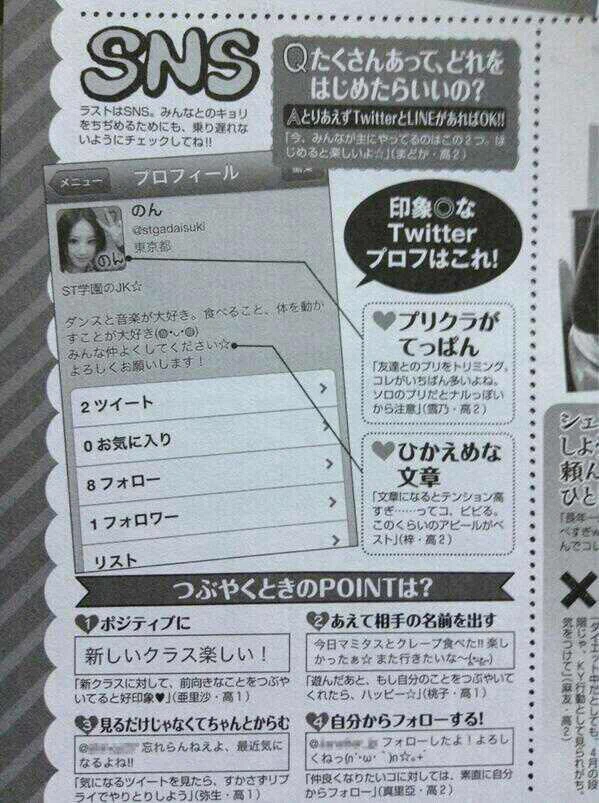 SNS
ラストはSNS。みんなとのキョリ
をちぢめるためにも、乗り遅れな
いようにチェックしてね!!
Qたくさんあって、どれを
はじめたらいいの？
AとりあえずTwitterとLINEがあればOK!!
「今、みんなが主にやってるのはこの2つ。は
じめると楽しいよ☆」(まどか・高2)
メニュー
プロフィール
のん
@stgadaisuki
東京都
のん
ST学園のJK☆
ダンスと音楽が大好き。食べること、体を動か
すことが大好き(◍•ᴗ•◍)
みんな仲よくしてください☆
よろしくお願いします！
2 ツイート
0 お気に入り
8 フォロー
1 フォロワー
リスト
印象◎な
Twitter
プロフはこれ!
プリクラが
てっぱん
「友達とのプリをトリミング。
コレがいちばん多いよね。
ソロのプリだとナルっぽい
から注意」(雪乃・高2)
ひかえめな
文章
「文章になるとテンション高
すぎ……ってコ、ビビる。
このくらいのアピールがベ
スト」(梓・高2)
つぶやくときのPOINTは？
1 ポジティブに
新しいクラス楽しい！
「新クラスに対して、前向きなことをつぶや
いてると好印象♥」(亜里沙・高1)
2 あえて相手の名前を出す
今日マミタスとクレープ食べた!! 楽し
かったぁ☆ また行きたいな〜
「遊んだあと、もし自分のことをつぶやいて
くれたら、ハッピー☆」(桃子・高1)
3 見るだけじゃなくてちゃんとからむ
@ 忘れらんねえよ、最近気に
なるよね!!
「気になるツイートを見たら、すかさずリプ
ライでやりとりしよう」(弥生・高1)
4 自分からフォローする!
@ フォローしたよ！よろし
くねっ(n'∀')n☆。+ﾟ
「仲良くなりたいコに対しては、素直に自分
からフォロー」(真里亞・高2)
シェ
しよ
頼ん
ひと
「長年
べすぎw
んでコレ
✕
「ダイエット中だとしても、4月の段
階じゃ、KY行動として見られがち。
気をつけて」(麻友・高2)